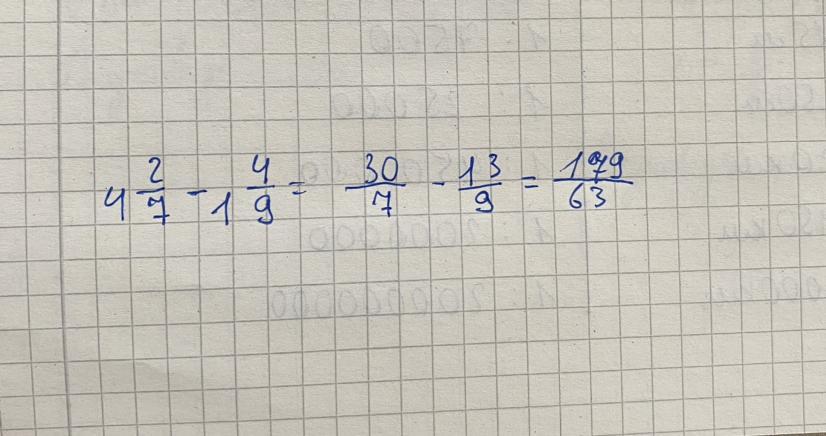 4 2/7 - 1 4/9 = 30/7 - 13/9 = 179/63